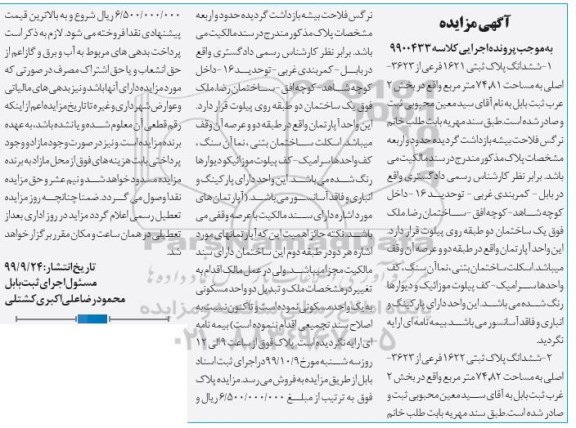 آگهی مزایده
به موجب پرونده اجرایی کلاسه ۹۹۰۰۴۳۳
۱-ششدانگ پلاک ثبتی ۱۶۲۱ فرعی از ۳۶۲۳-
اصلی به مساحت ۷۴,۸۱ متر مربع واقع در بخش ۲
غرب ثبت بابل به نام آقای سید معین محبوبی ثبت
و صادر شده است. طبق سند مهریه بابت طلب خانم
نرگس فلاحت بیشه بازداشت گردیده حدود و اربعه
مشخصات پلاک مذکور مندرج در سند مالکیت می
باشد. برابر نظر کارشناس رسمی دادگستری واقع
در بابل - کمربندی غربی - توحید ۱۶ - داخل
کوچه شاهد-کوچه افق - ساختمان رضا. ملک
فوق یک ساختمان دو طبقه روی پیلوت قرار دارد.
این واحد آپارتمان واقع در طبقه دو و عرصه آن وقف
میباشد. اسکلت ساختمان بتنی، نما آن سنگ، کف
واحدها سرامیک- کف پیلوت موزائیک و دیوارها
رنگ شده می باشد. این واحد دارای پارکینگ و
انباری و فاقد آسانسور می باشد. بیمه نامه ای ارایه
نگردید.
۲-ششدانگ پلاک ثبتی ۱۶۲۲ فرعی از ۳۶۲۳-
اصلی به مساحت ۷۴,۸۲ متر مربع واقع در بخش ۲
غرب ثبت بابل به آقای سید معین محبوبی ثبت و
صادر شده است. طبق سند مهریه بابت طلب خانم
نرگس فلاحت بیشه بازداشت گردیده حدود و اربعه
مشخصات پلاک مذکور مندرج در سند مالکیت می
باشد. برابر نظر کارشناس رسمی دادگستری واقع
در بابل - کمربندی غربی - توحید ۱۶ - داخل
کوچه شاهد-کوچه افق - ساختمان رضا. ملک
فوق یک ساختمان دو طبقه روی پیلوت قرار دارد.
این واحد آپارتمان واقع در طبقه دو و عرصه آن وقف
میباشد. اسکلت ساختمان بتنی، نما آن سنگ،
کف واحدها سرامیک- کف پیلوت موزائیک و دیوارها
رنگ شده می باشد. این واحد دارای پارکینگ و
انباری و فاقد آسانسور می باشد. (آپارتمان های
مورد اشاره دارای سند مالکیت با عرصه وقفی می
باشد. نکته حائز اهمیت این که آپارتمانهای مورد
اشاره هر دو در طبقه دوم این ساختمان دارای سند
مالکیت مجزا میباشد. ولی در عمل مالک اقدام به
تغییر در مشخصات ملک و تبدیل دو واحد مسکونی
به یک واحد مسکونی نموده است و تاکنون نسبت به
اصلاح سند تجمیعی اقدام ننموده است) بیمه نامه
ای ارایه نگردیده است. پلاک فوق از ساعت ۹ الی ۱۲
روز سه شنبه مورخ ۹۹/۱۰/۹ در اجرای ثبت اسناد
بابل از طریق مزایده به فروش می رسد. مزایده پلاک
فوق به ترتیب از مبلغ ۶/۵۰۰/۰۰۰/۰۰۰ ریال و
۶/۵۰۰/۰۰۰/۰۰۰ ریال شروع و به بالاترین قیمت
پیشنهادی نقدا فروخته می شود. لازم به ذکر است
پرداخت بدهی های مربوط به آب و برق و گاز اعم از
حق انشعاب و یا حق اشتراک مصرف در صورتی که
مورد مزایده دارای آنها باشد و نیز بدهی های مالیاتی
و عوارض شهرداری و غیره تا تاریخ مزایده اعم از اینکه
رقم قطعی آن معلوم شده و یا نشده باشد، به عهده
برنده مزایده است و نیز در صورت وجود مازاد و وجود
پرداختی بابت هزینه های فوق از محل مازاد به برنده
مزایده مسترد خواهد شد و نیم عشر و حق مزایده
نقدا وصول می گردد. ضمنا چنانچه روز مزایده
تعطیل رسمی اعلام گردد مزاید در روز اداری بعد از
تعطیلی در همان ساعت و مکان مقرر برگزار خواهد
شد
تاریخ انتشار: ۹۹/۹/۲۴
مسئول اجرای ثبت بابل
محمود رضا علی اکبری کشتلی
ParsNamadData
۰۲۱-۸۸۳۴۹۶۷۰-۵